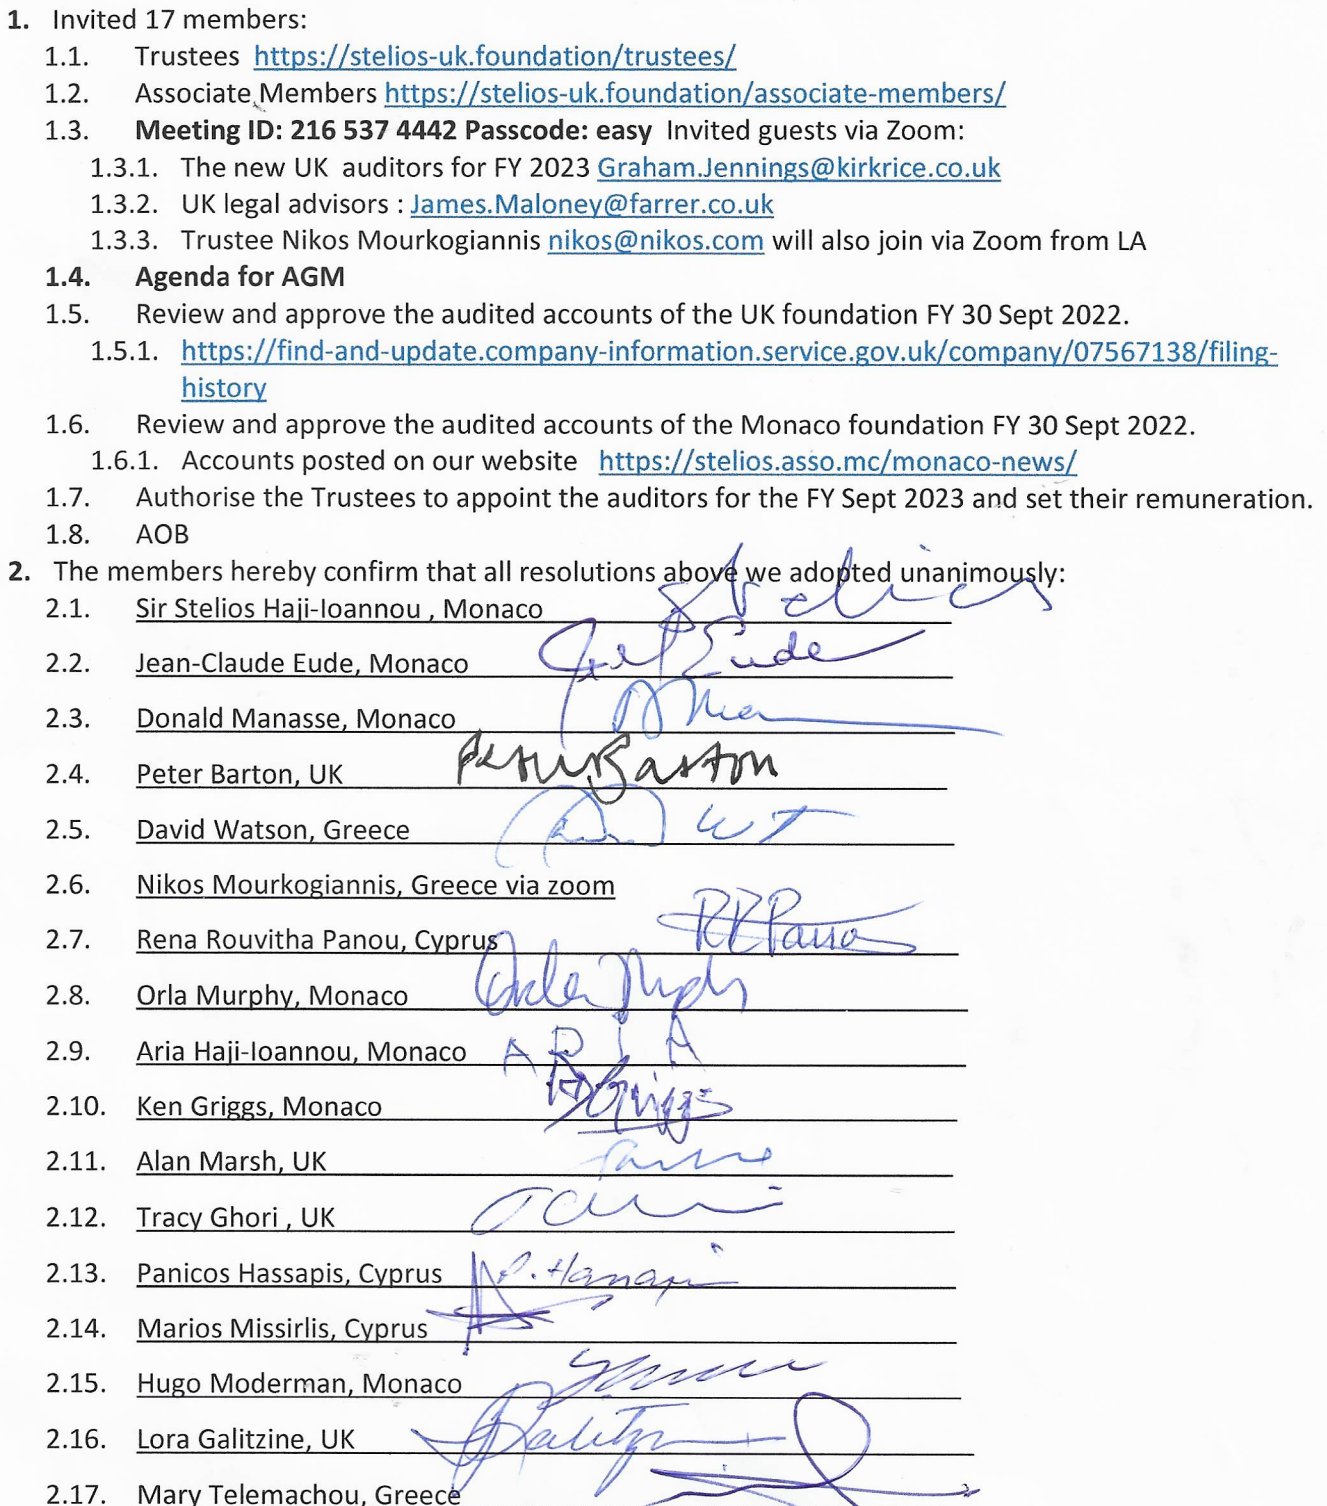 1. Invited 17 members:
1.1. Trustees https://stelios-uk.foundation/trustees/
1.2. Associate Members https://stelios-uk.foundation/associate-members/
1.3. Meeting ID: 216 537 4442 Passcode: easy Invited guests via Zoom:
1.3.1. The new UK auditors for FY 2023 Graham.Jennings@kirkrice.co.uk
1.3.2. UK legal advisors : James.Maloney@farrer.co.uk
1.3.3. Trustee Nikos Mourkogiannis nikos@nikos.com will also join via Zoom from LA
1.4. Agenda for AGM
1.5. Review and approve the audited accounts of the UK foundation FY 30 Sept 2022.
1.5.1. https://find-and-update.company-information.service.gov.uk/company/07567138/filing-
history
1.6. Review and approve the audited accounts of the Monaco foundation FY 30 Sept 2022.
1.6.1. Accounts posted on our website https://stelios.asso.mc/monaco-news/
1.7. Authorise the Trustees to appoint the auditors for the FY Sept 2023 and set their remuneration.
1.8. AOB
2. The members hereby confirm that all resolutions above we adopted unanimously:
2.1. Sir Stelios Haji-Ioannou , Monaco Stelios
2.2. Jean-Claude Eude, Monaco Eude
2.3. Donald Manasse, Monaco
2.4. Peter Barton, UK Peter Barton
2.5. David Watson, Greece
2.6. Nikos Mourkogiannis, Greece via zoom
2.7. Rena Rouvitha Panou, Cyprus RRPanou
2.8. Orla Murphy, Monaco Orla Murphy
2.9. Aria Haji-Ioannou, Monaco ARIA
2.10. Ken Griggs, Monaco Griggs
2.11. Alan Marsh, UK
2.12. Tracy Ghori , UK
2.13. Panicos Hassapis, Cyprus
2.14. Marios Missirlis, Cyprus
2.15. Hugo Moderman, Monaco
2.16. Lora Galitzine, UK
2.17. Mary Telemachou, Greece